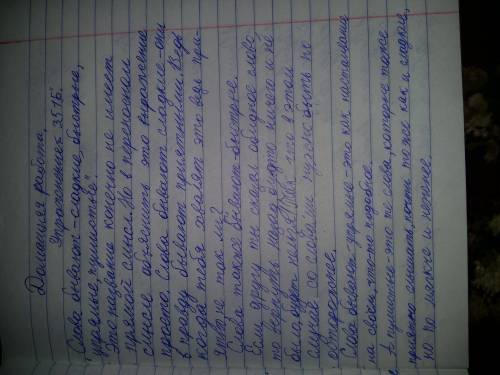 Домашняя работа.
Упражнение 3515.
"Слова бывают-сладкие, быстрые,
упрямые, пушистые"
Это название конечно не имеет
прямой смысл. Но в переносном
смысле объяснить это выражение
просто. Слова бывают сладкие-они
в правду бывают приятными. Когда
тебя хвалят это ведь при-
ятно, не так ли?
Слова также бывают-быстрые.
Если другу ты сказал обидное слово
то вернуть назад, будто ничего и не
было, будет нельзя! Так что в этом
случае со словами нужно быть по
осторожнее.
Слова бывают-упрямые-это как настаивание
на своём, что-то подобное.
А пушистые-это те слова, которые также
приятно слышать, почти также как и сладкие,
но по мягче и нежнее.